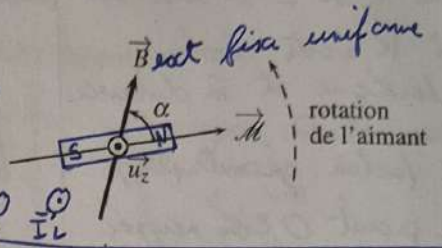 B⃗ ext fixe uniforme
α
S N
M⃗
u⃗z
rotation
de l'aimant